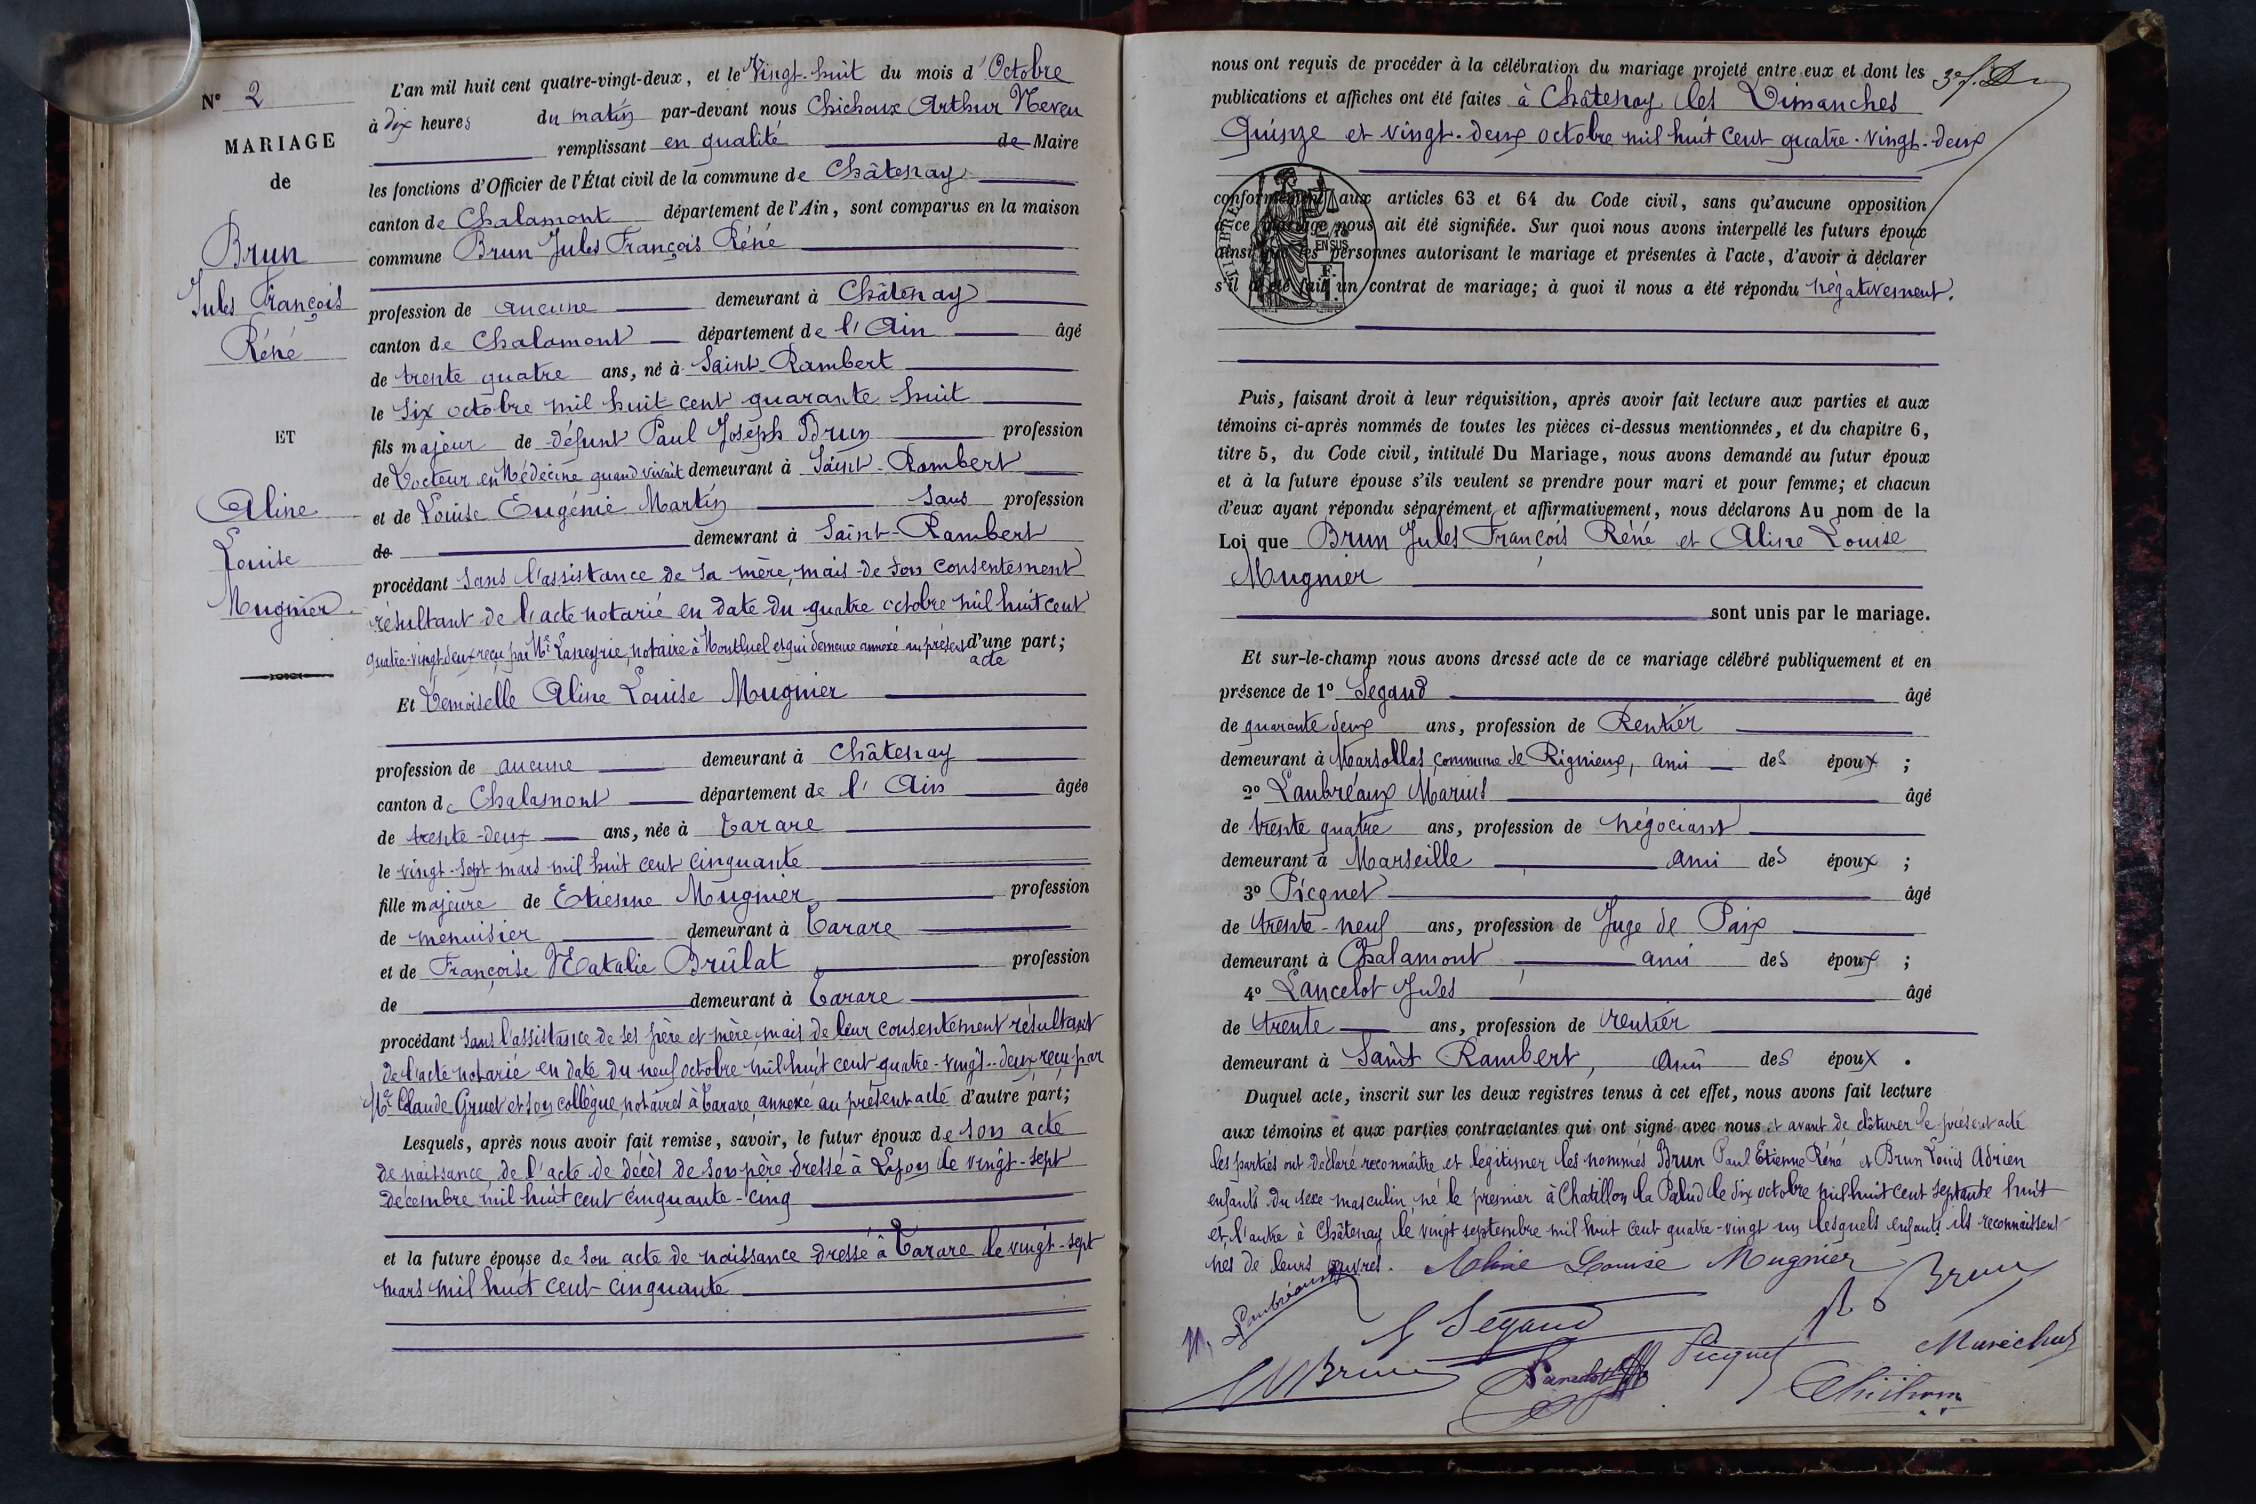 N° 2
MARIAGE
de
Brun
Jules François
Réné
ET
Aline
Louise
Mugnier
L'an mil huit cent quatre-vingt-deux, et le Vingt-huit du mois d'Octobre
à dix heures du matin par-devant nous Chichoux Arthur Neveu
remplissant en qualité de Maire
les fonctions d'Officier de l'État civil de la commune de Châtenay
canton de Chalamont département de l'Ain, sont comparus en la maison
commune Brun Jules François Réné
profession de aucune demeurant à Châtenay
canton de Chalamont département de l'Ain âgé
de trente quatre ans, né à Saint-Rambert
le six octobre mil huit cent quarante huit
fils majeur de défunt Paul Joseph Brun profession
de Docteur en Médecine quand vivait demeurant à Saint-Rambert
et de Louise Eugénie Martin sans profession
de demeurant à Saint-Rambert
procédant sans l'assistance de sa mère, mais de son consentement
résultant de l'acte notarié en date du quatre octobre mil huit cent
quatre-vingt-deux reçu par Me notaire à Montluel et qui demeure annexé au présent d'une part;
acte
Et Demoiselle Aline Louise Mugnier
profession de aucune demeurant à Châtenay
canton de Chalamont département de l'Ain âgée
de trente-deux ans, née à Tarare
le vingt-sept mars mil huit cent cinquante
fille majeure de Etienne Mugnier profession
de menuisier demeurant à Tarare
et de Françoise Natalie Brûlat profession
de demeurant à Tarare
procédant sans l'assistance de ses père et mère mais de leur consentement résultant
de l'acte notarié en date du neuf octobre mil huit cent quatre-vingt-deux reçu par
Me Claude Gruet et son collègue, notaires à Tarare, annexé au présent acte d'autre part;
Lesquels, après nous avoir fait remise, savoir, le futur époux de son acte
de naissance, de l'acte de décès de son père dressé à Lyon le vingt-sept
décembre mil huit cent cinquante-cinq
et la future épouse de son acte de naissance dressé à Tarare le vingt-sept
mars mil huit cent cinquante
nous ont requis de procéder à la célébration du mariage projeté entre eux et dont les
publications et affiches ont été faites à Châtenay les Dimanches
Quinze et vingt-deux octobre mil huit cent quatre-vingt-deux
conformément aux articles 63 et 64 du Code civil, sans qu'aucune opposition
à ce mariage nous ait été signifiée. Sur quoi nous avons interpellé les futurs époux
ainsi que les personnes autorisant le mariage et présentes à l'acte, d'avoir à déclarer
s'il a été fait un contrat de mariage; à quoi il nous a été répondu négativement.
EN SUS
Puis, faisant droit à leur réquisition, après avoir fait lecture aux parties et aux
témoins ci-après nommés de toutes les pièces ci-dessus mentionnées, et du chapitre 6,
titre 5, du Code civil, intitulé Du Mariage, nous avons demandé au futur époux
et à la future épouse s'ils veulent se prendre pour mari et pour femme; et chacun
d'eux ayant répondu séparément et affirmativement, nous déclarons Au nom de la
Loi que Brun Jules François Réné et Aline Louise
Mugnier
sont unis par le mariage.
Et sur-le-champ nous avons dressé acte de ce mariage célébré publiquement et en
présence de 1° Segaud âgé
de quarante deux ans, profession de Rentier
demeurant à Marsollas, commune de Rignieux, ami des époux ;
2° Laubréaux Marius âgé
de trente quatre ans, profession de négociant
demeurant à Marseille ami des époux ;
3° Picquet âgé
de trente-neuf ans, profession de Juge de Paix
demeurant à Chalamont ami des époux ;
4° Lancelot Jules âgé
de trente ans, profession de rentier
demeurant à Saint Rambert, ami des époux .
Duquel acte, inscrit sur les deux registres tenus à cet effet, nous avons fait lecture
aux témoins et aux parties contractantes qui ont signé avec nous et avant de clôturer le présent acte
les parties ont déclaré reconnaître et légitimer les nommés Brun Paul Etienne Réné et Brun Louis Adrien
enfants du sexe masculin, né le premier à Chatillon la Palud le dix octobre mil huit cent septante huit
et l'autre à Châtenay le vingt septembre mil huit cent quatre-vingt un lesquels enfants ils reconnaissent
nés de leurs œuvres. Aline Louise Mugnier
Brun
M. Laubréaux
Segaud
Brun
Lancelot
Picquet
Maréchal
Chichoux